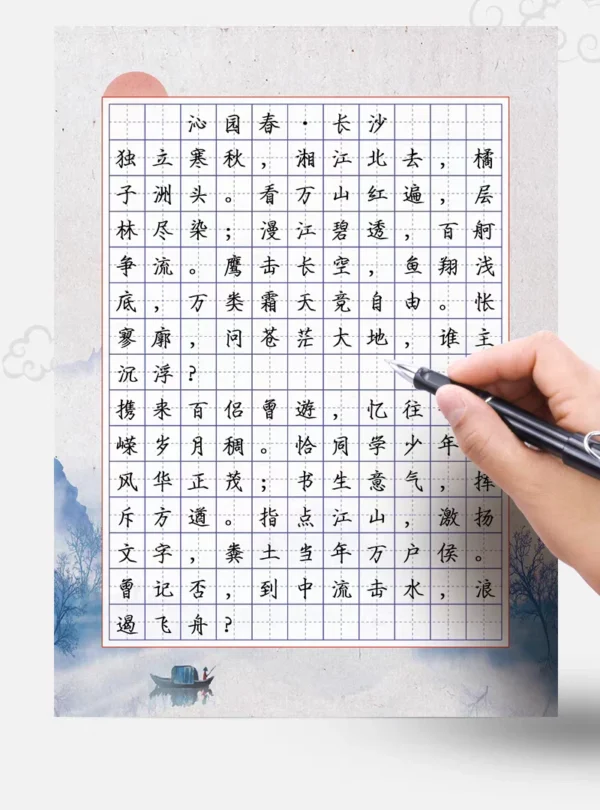 沁园春·长沙
独立寒秋，湘江北去，橘
子洲头。看万山红遍，层
林尽染；漫江碧透，百舸
争流。鹰击长空，鱼翔浅
底，万类霜天竞自由。怅
寥廓，问苍茫大地，谁主
沉浮？
携来百侣曾遊，忆往
嵘岁月稠。恰同学少年
风华正茂；书生意气，挥
斥方遒。指点江山，激扬
文字，粪土当年万户侯。
曾记否，到中流击水，浪
遏飞舟？